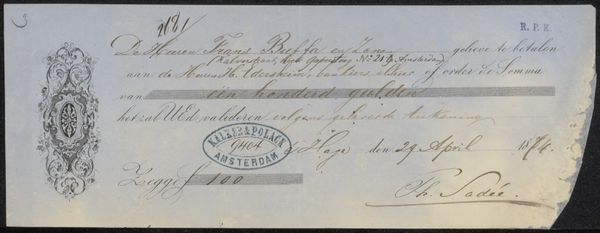 2181
R.P.K.
De Heeren Frans Buffa en Zoon gelieve te betalen
(Kalverstraat, hoek Gapersteeg No 217, Amsterdam)
aan de Heeren H. Edersheim, bankiers alhier of order de Somma
van een honderd gulden
het zal UEd. valideren volgens rekening
KEIZER & POLACK
9404
AMSTERDAM
's Hage den 29 April 1874.
Zegge f 100
Ph. Sadée.